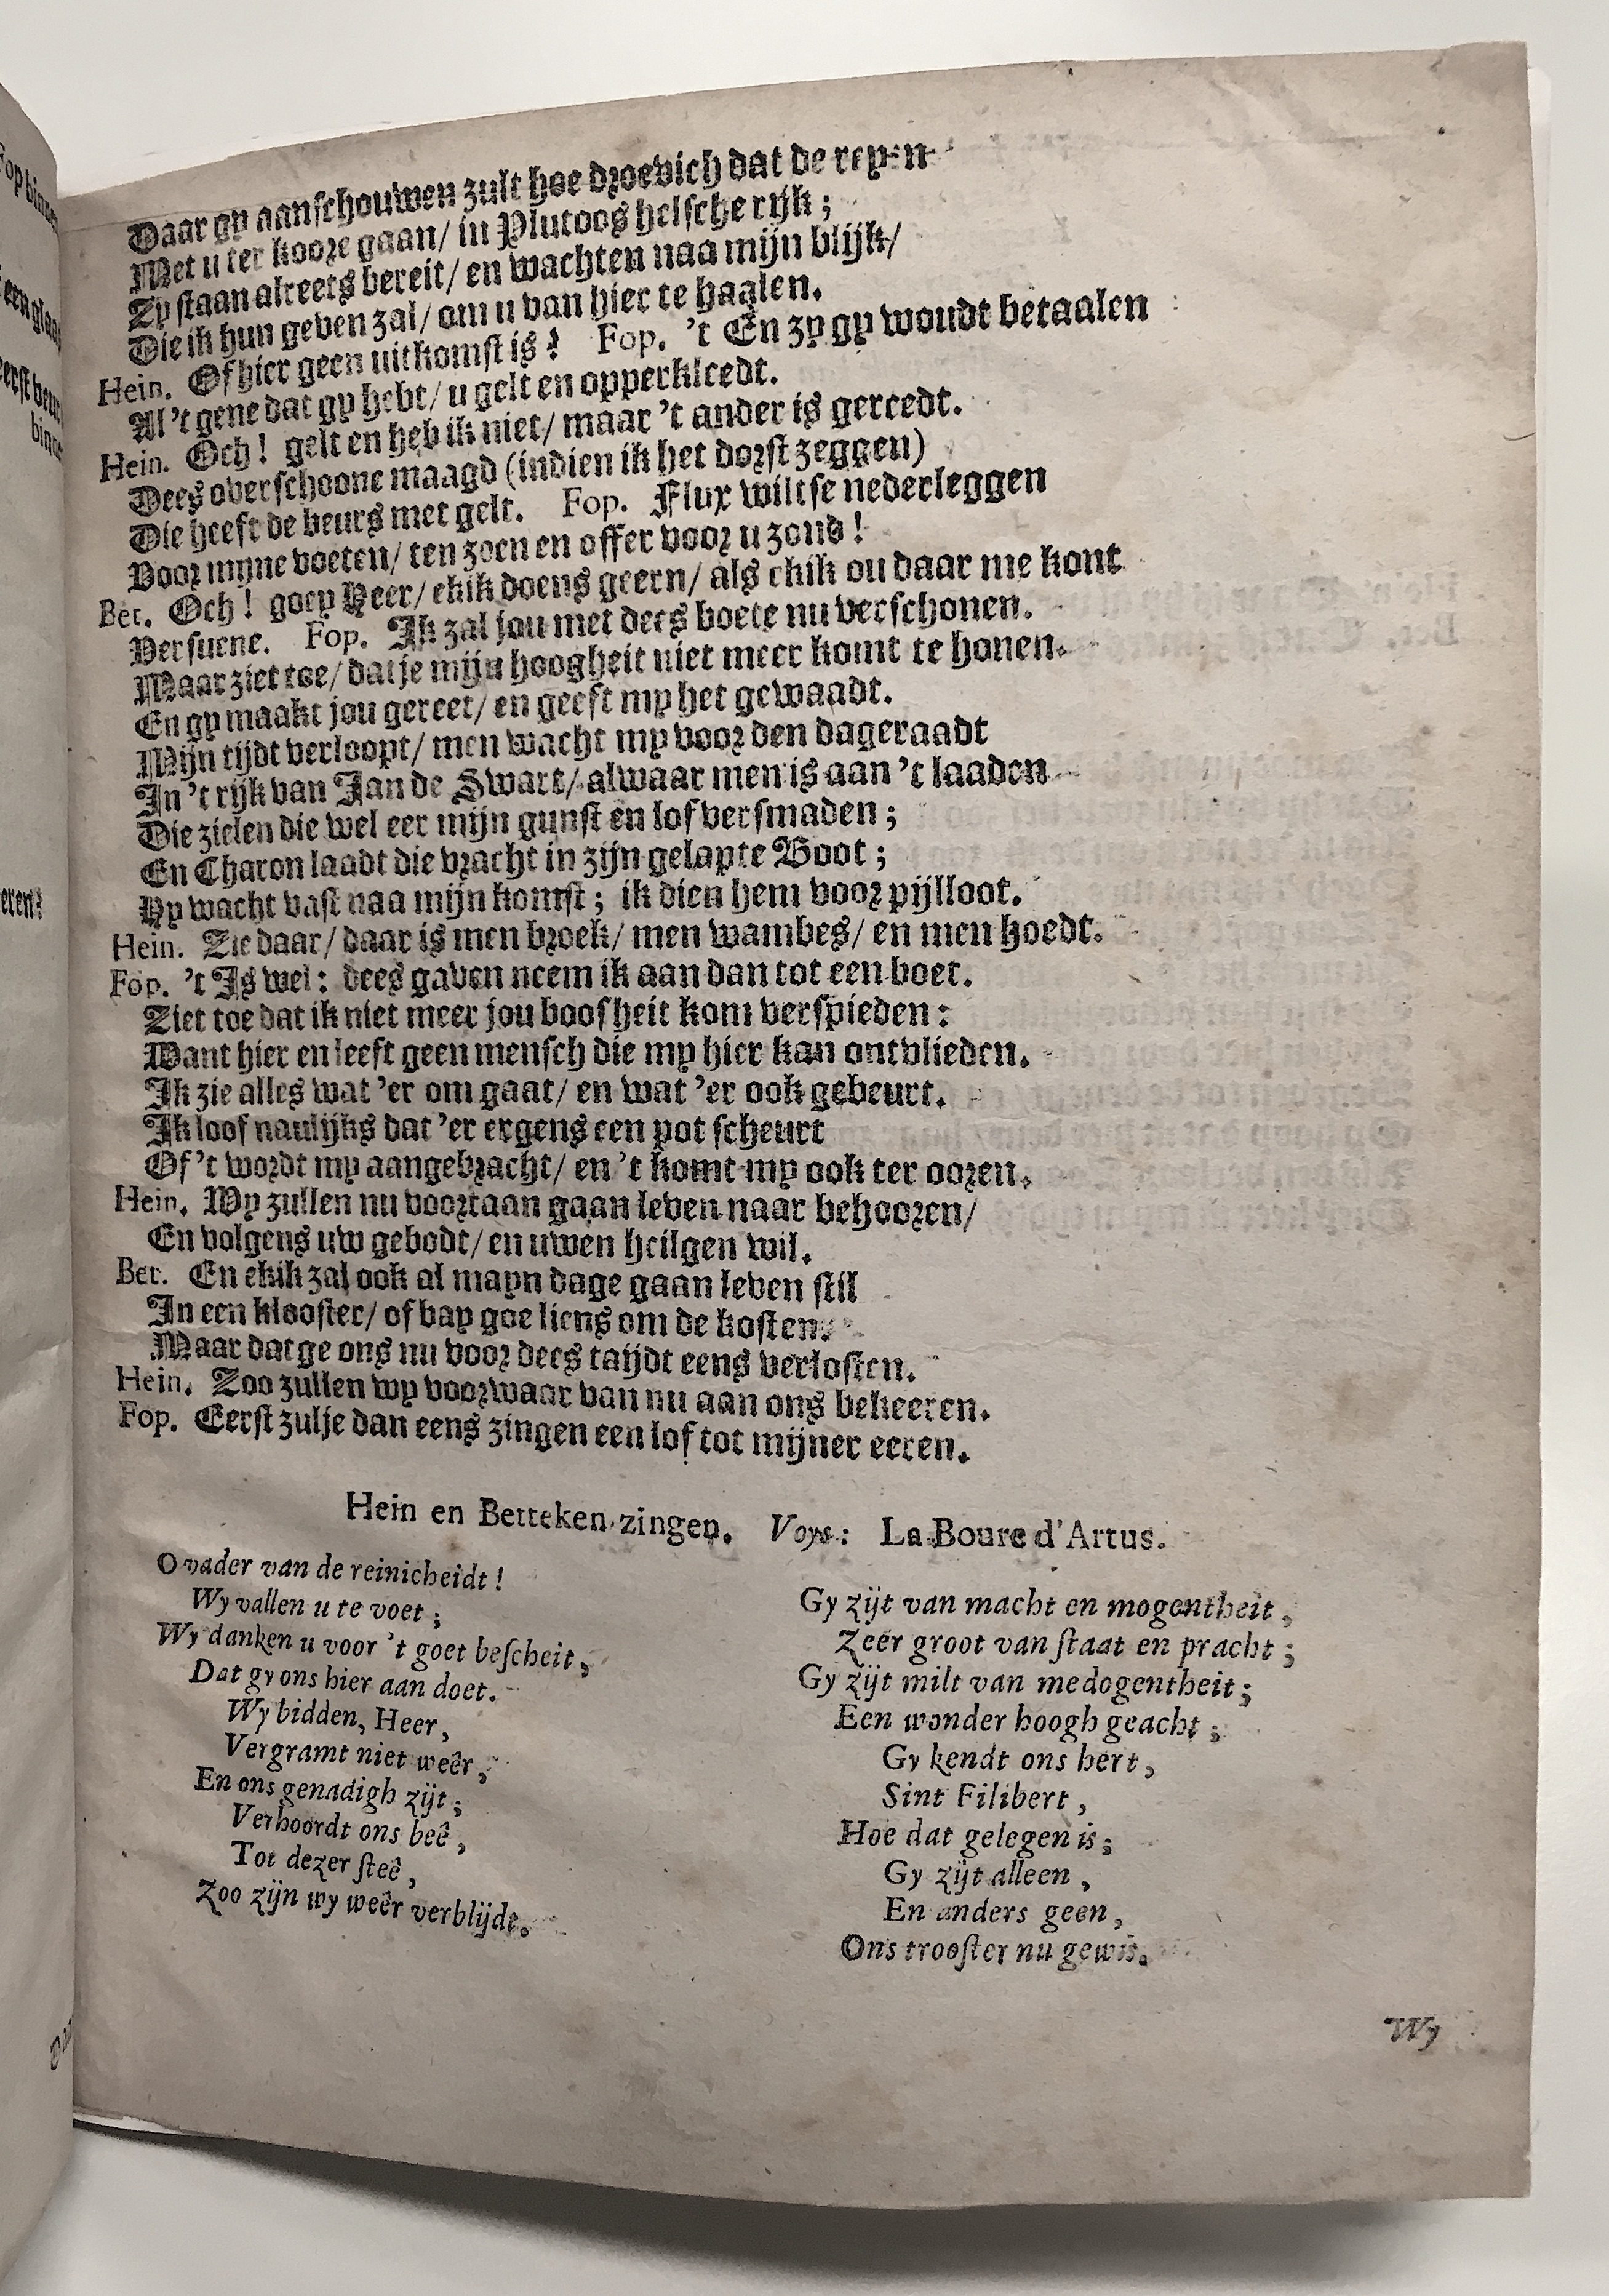 Daar gy aanschouwen zult hoe droevich dat de reyen
Met u ter kooze gaan/ in Plutoos helsche rijk;
Zy staan alreets bereit/ en wachten naa mijn blijk/
Die ik hun geven zal/ om u van hier te haalen.
Hein. Of hier geen uitkomst is? Fop. 't En zy gy woudt betaalen
Al 't gene dat gy hebt/ u gelt en opperkleedt.
Hein. Och! gelt en heb ik niet/ maar 't ander is gereedt.
Dees overschoone maagd (indien ik het dorst zeggen)
Die heeft de beurs met gelt. Fop. Flux wiltse nederleggen
Voor mijne voeten/ ten zoen en offer voor u zond!
Bet. Och! goey Heer/ ekik doens geern/ als ekik ou daar me kont
Versuene. Fop. Ik zal jou met dees boete nu verschonen.
Maar ziet toe/ dat je mijn hoogheit niet meer komt te honen.
En gy maakt jou gereet/ en geeft my het gewaadt.
Mijn tijdt verloopt/ men wacht my voor den dageraadt
In 't rijk van Jan de Swart/ alwaar men is aan 't laaden
Die zielen die wel eer mijn gunst en lof versmaden;
En Charon laadt die vracht in zijn gelapte Boot;
Hy wacht vast naa mijn komst; ik dien hem voor pijlloot.
Hein. Zie daar/ daar is men broek/ men wambes/ en men hoedt.
Fop. 't Is wel: dees gaven neem ik aan dan tot een boet.
Ziet toe dat ik niet meer jou boosheit kom verspieden:
Want hier en leeft geen mensch die my hier kan ontvlieden.
Ik zie alles wat 'er om gaat/ en wat 'er ook gebeurt.
Ik loof naulijks dat 'er ergens een pot scheurt
Of 't wordt my aangebracht/ en 't komt my ook ter ooren.
Hein. Wy zullen nu voortaan gaan leven naar behooren/
En volgens uw gebodt/ en uwen heilgen wil.
Bet. En ekik zal ook al mayn dage gaan leven stil
In een klooster/ of bay goe liens om de kosten.
Maar dat ge ons nu voor dees taijdt eens verlosten.
Hein. Zoo zullen wy voorwaar van nu aan ons bekeeren.
Fop. Eerst zulje dan eens zingen een lof tot mijner eeren.
Hein en Betteken zingen. Voys: La Boure d'Artus.
O vader van de reinicheidt!
Wy vallen u te voet;
Wy danken u voor 't goet bescheit,
Dat gy ons hier aan doet.
Wy bidden, Heer,
Vergramt niet weêr,
En ons genadigh zijt;
Verhoordt ons beê,
Tot dezer steê,
Zoo zijn wy weêr verblijdt.
Gy zijt van macht en mogentheit,
Zeer groot van staat en pracht;
Gy zijt milt van medogentheit;
Een wonder hoogh geacht;
Gy kendt ons hert,
Sint Filibert,
Hoe dat gelegen is;
Gy zijt alleen,
En anders geen,
Ons trooster nu gewis.
Wy